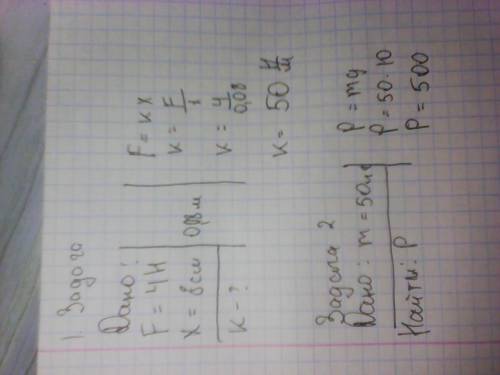 1. Задача
Дано:
F = 4Н
X = 8см
0,08 м
K - ?
F = кх
к = F/x
к = 4/0,08
К = 50 Н/м
Задача 2
Дано: m = 50кг
Найти: P
P = mg
P = 50·10
P = 500